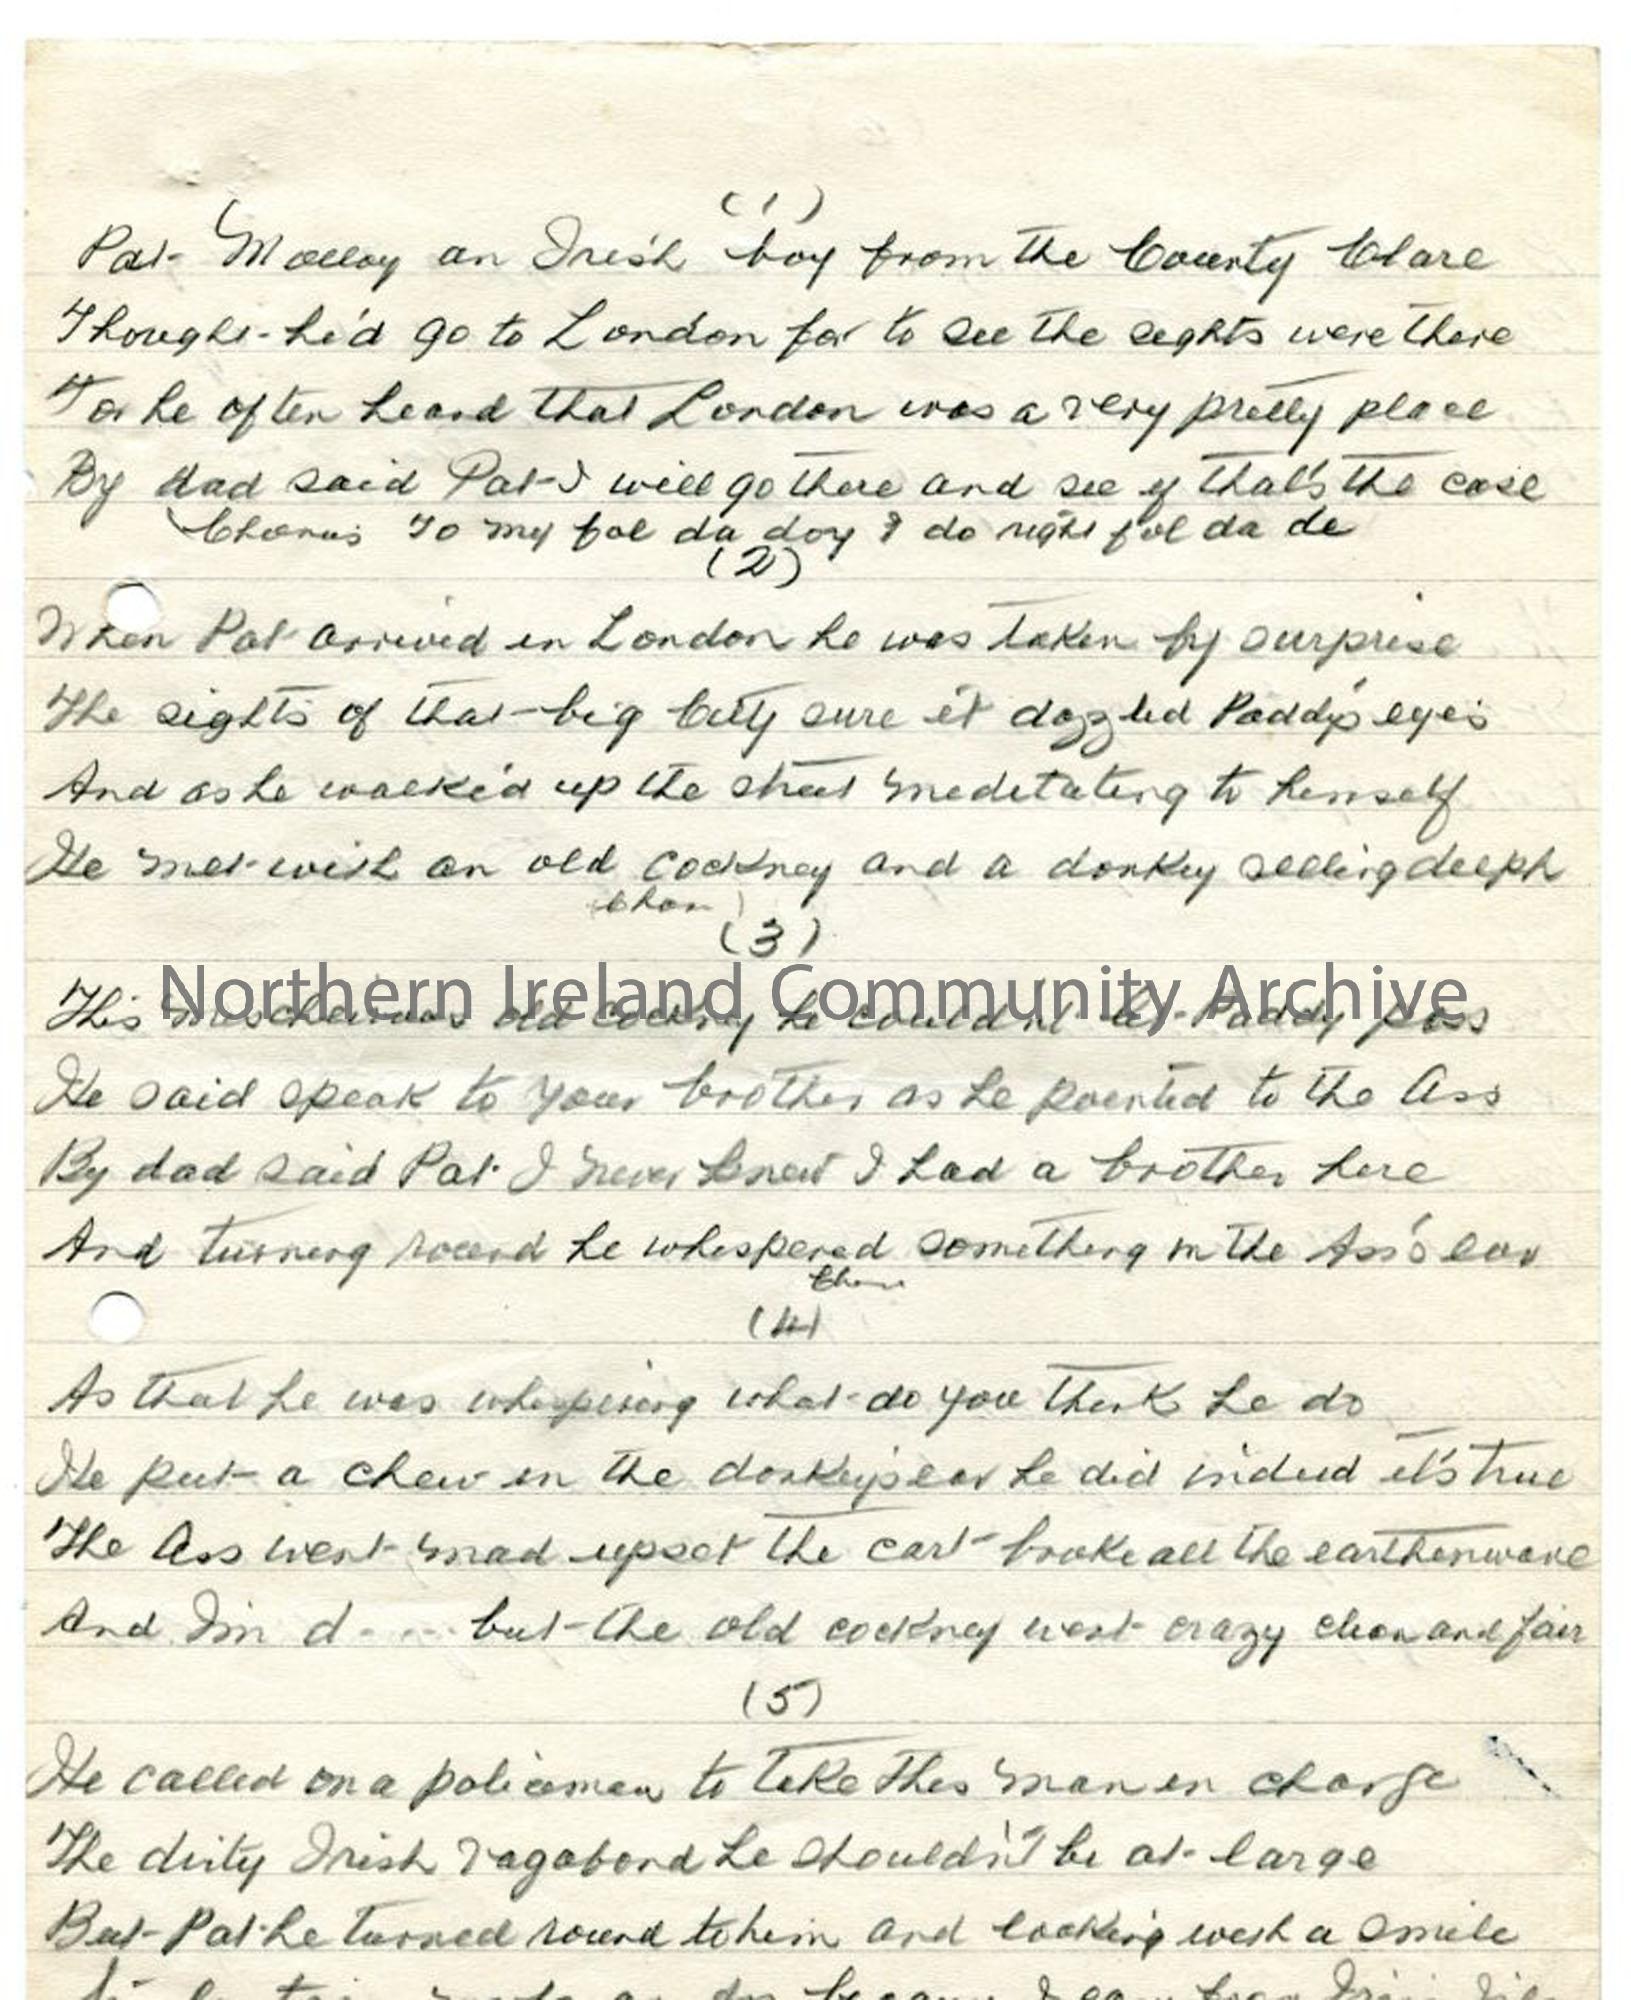 (1)
Pat Molloy an Irish boy from the County Clare
Thought he'd go to London for to see the sights were there
For he often heard that London was a very pretty place
By dad said Pat I will go there and see if that's the case
Chorus To my fol da doy I do right fol da de
(2)
When Pat arrived in London he was taken by surprise
The sights of that big City sure it dazzled Paddy's eyes
And as he walked up the street meditating to himself
He met with an old cockney and a donkey selling delph
Chor
(3)
Northern Ireland Community Archive
This mischeivous old cockney he could'nt let Paddy pass
He said speak to your brother as he pointed to the Ass
By dad said Pat I never knew I had a brother here
And turning round he whispered something in the Ass's ear
Chor
(4)
As that he was whispering what do you think he do
He put a chew in the donkey's ear he did indeed it's true
The Ass went mad upset the cart broke all the earthenware
And I'm d.... but the old cockney went crazy clean and fair
(5)
He called on a policeman to take this man in charge
The dirty Irish vagabond he should'nt be at large
But Pat he turned round to him and looking with a smile